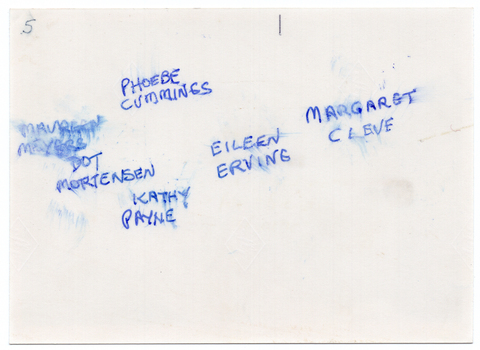 5
PHOEBE
CUMMINGS
MARGARET
CLEVE
MAUREEN
MEYERS
EILEEN
ERVING
DOT
MORTENSEN
KATHY
PAYNE